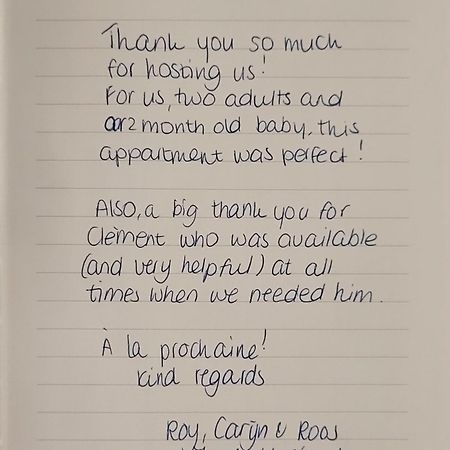 Thank you so much
for hosting us!
For us, two adults and
our 2 month old baby, this
appartment was perfect!
Also, a big thank you for
Clément who was available
(and very helpful) at all
times when we needed him.
À la prochaine!
kind regards
Roy, Caryn & Roos